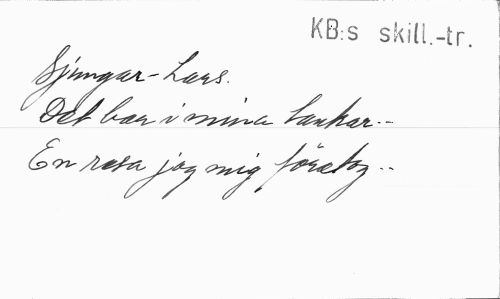 KB:s skill.-tr.
Sjungar-Lars.
Det bar i mina tankar..
En resa jag mig företog..